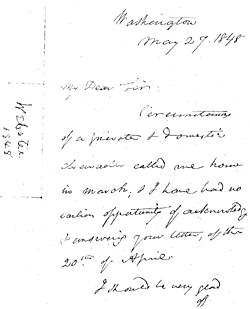 Washington
May 27. 1848
My Dear Sir:
Circumstances
of a private & domestic
character called me home
in March, & I have had no
earlier opportunity of acknowledg
& answering your letter, of the
20th of April.
I should be very glad
of
Webster
1848